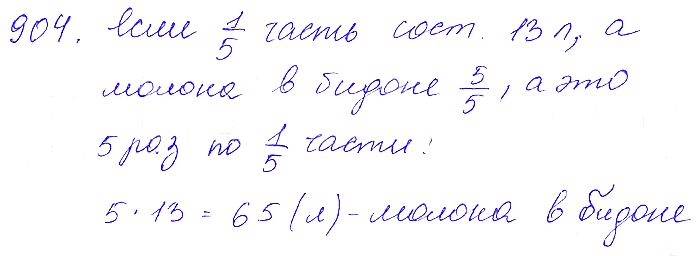 904. Если 1/5 часть сост. 13 л, а
молока в бидоне 5/5, а это
5 раз по 1/5 части:
5 · 13 = 65 (л) - молока в бидоне